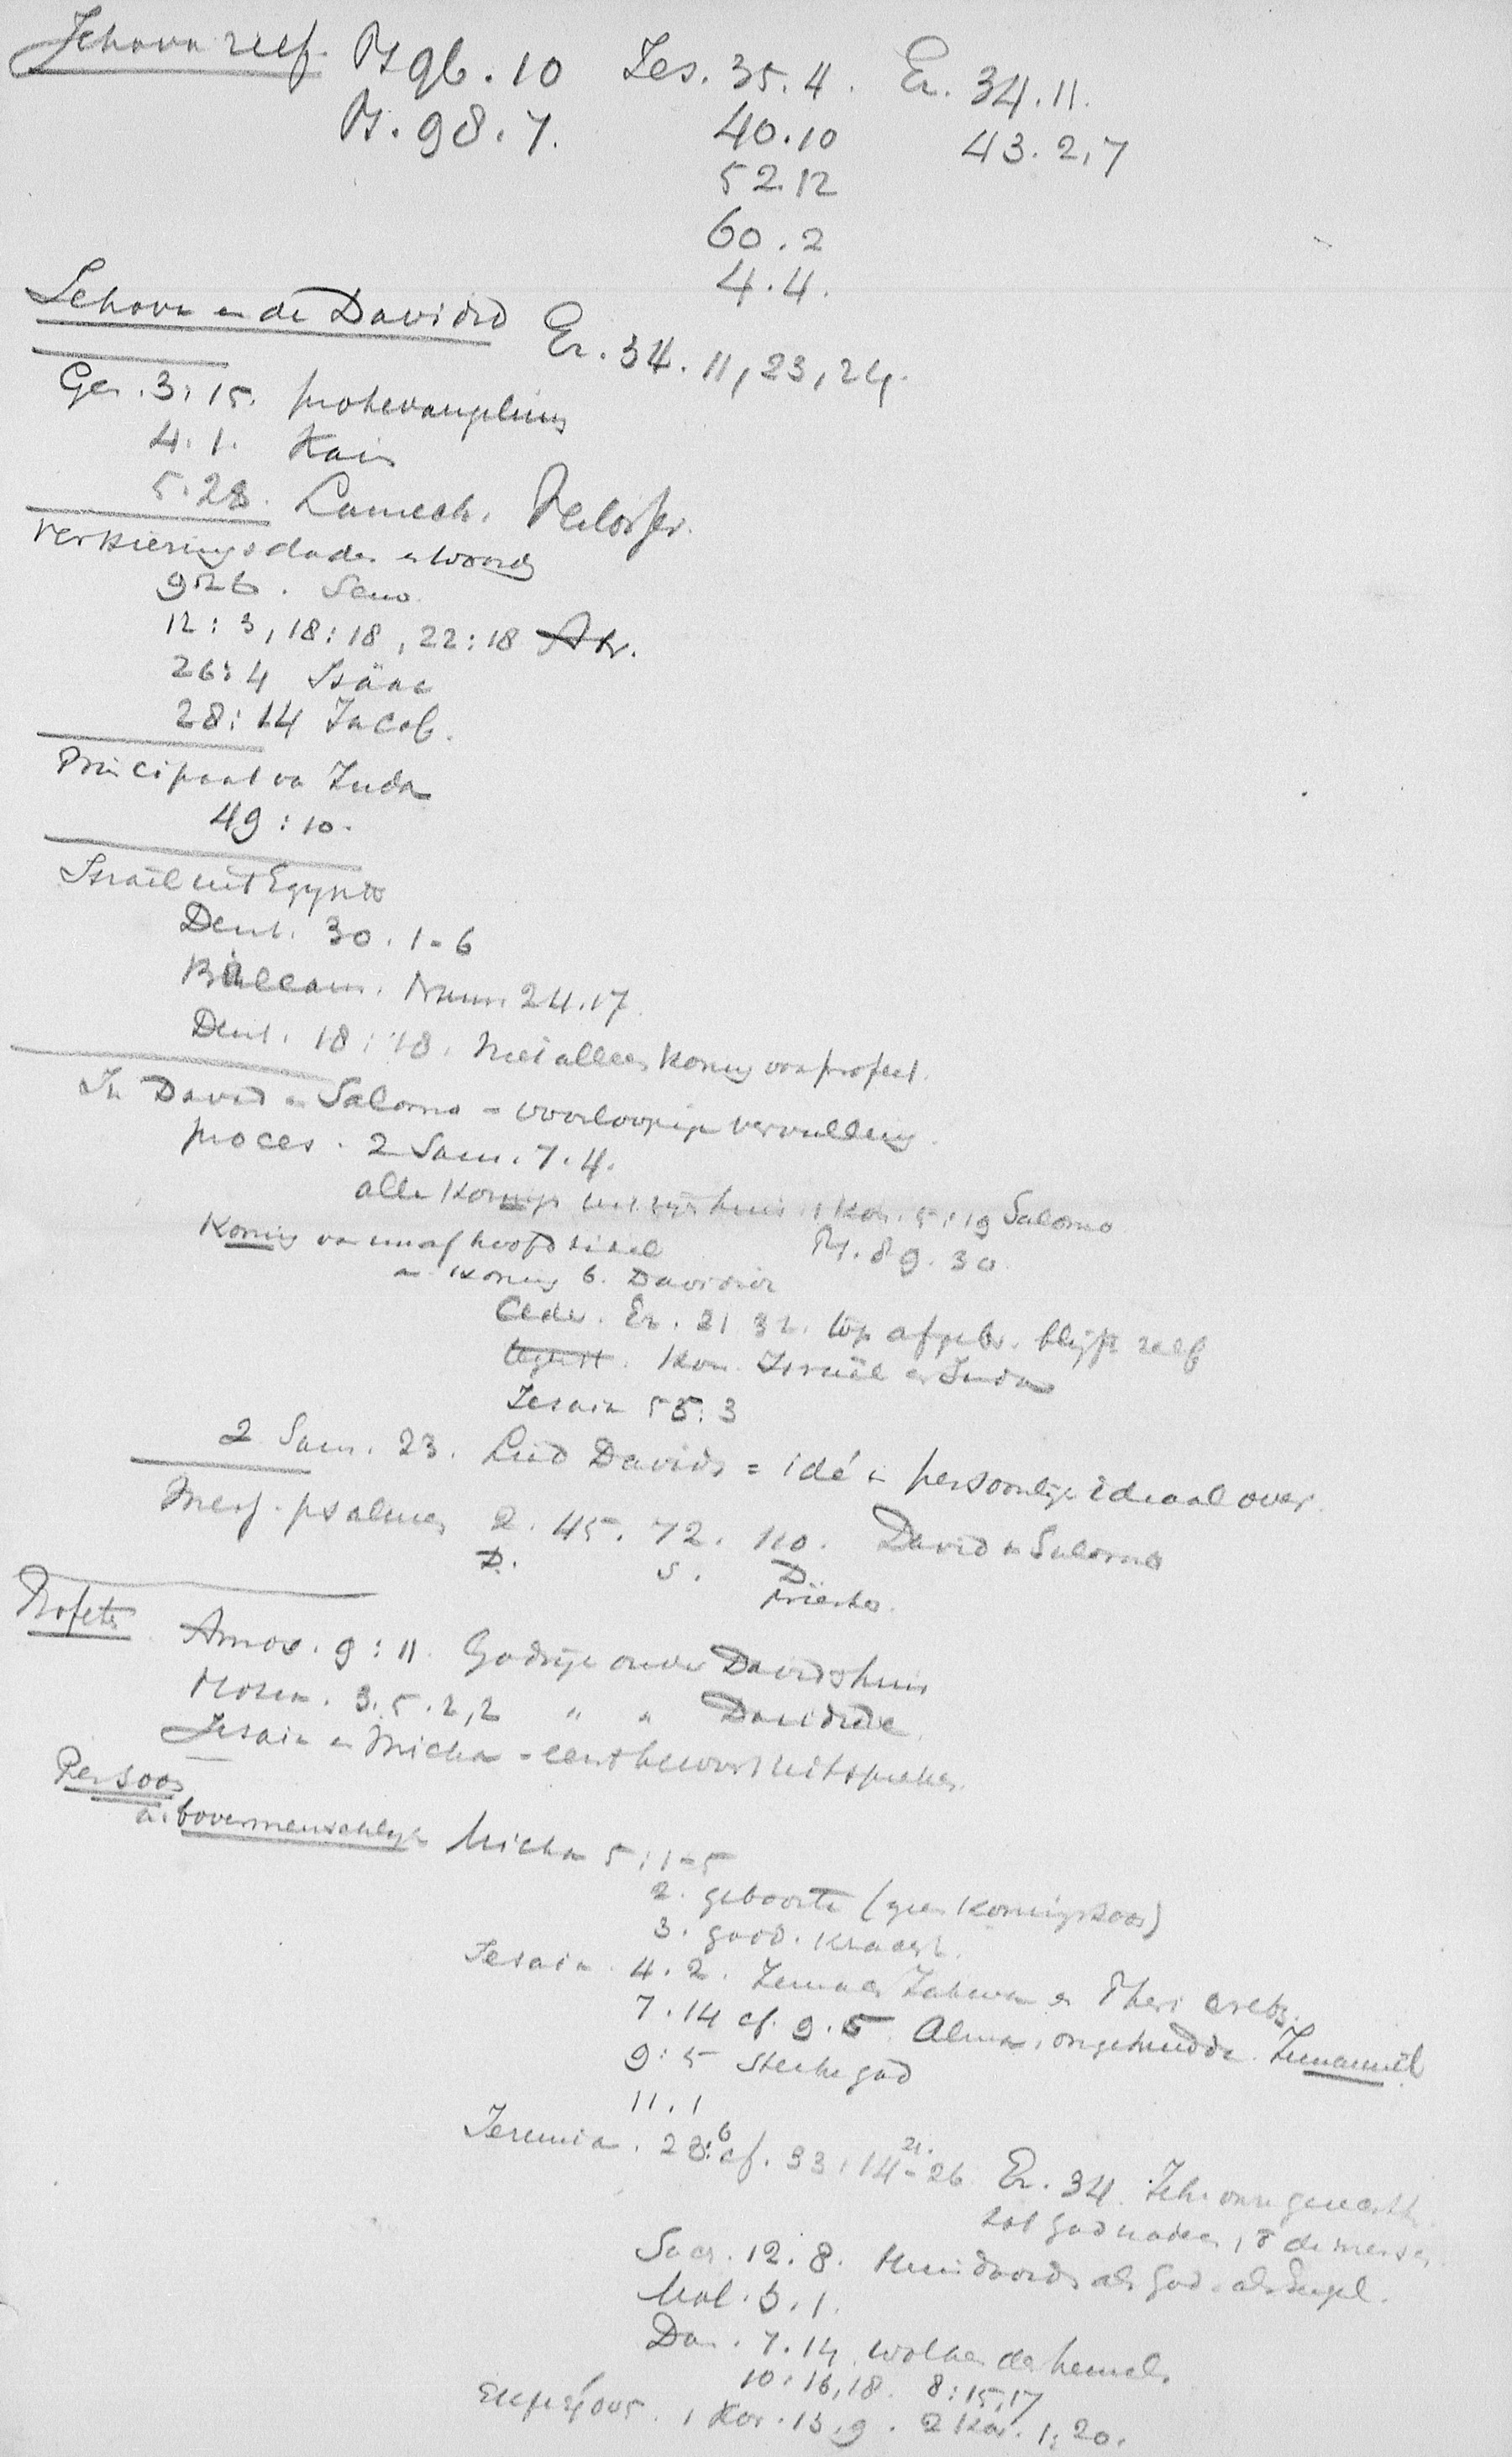 Jehova zelf. Ps 96.10 Jes. 35.4. Ez. 34.11.
Ps. 98.7. 40.10 43.2,7
52.12
60.2
4.4.
Jehova en de Davidid Ez. 34.11,23,24.
Gen. 3:15. protevangelium
4.1. Kain
5.28. Lamech.
Verkiezingsdaden en woord
9:26. Sem
12:3, 18:18, 22:18 Abr.
26:4 Isäac
28:14 Jacob.
Principaat van Juda
49:10.
Israël uit Egypte
Deut. 30.1-6
Bileam. Num. 24.17.
Deut. 18:18. Niet alleen Koning ook profeet.
In David en Salomo - voorloopige vervulling.
proces. 2 Sam. 7.4.
alle Koningen uit zijn huis 1 Kon. 5:19 Salomo
Koning van unaf hoofdtitel Ps. 89.30
Koning b. Davidier
Ceder. Ez. 21 32. top afgebr. blijft zelf
Kon. Israël en Juda
Jesaia 55:3
2 Sam. 23. Lied Davids = idé en persoonlijk ideaal over.
Mess. psalmen 2. 45. 72. 110. David en Salomo
D. S. D.
Priester.
Profeten Amos. 9:11. Godsrijk onder Davids huis
Hosea. 3.5. 2,2 " " Davidide
Jesaia en Micha - eerst bewust uitspreken.
Persoon
a. bovenmenschelijk Micha 5:1-5
2. geboorte (geen Koningszoon)
3. godd. kracht.
Jesaia. 4.2. Zemach Jahwe en Pheri arets.
7.14 cf. 9.5. Alma, ongehuwde. Immanuël
9:5 Sterke god
11.1
Jeremia. 23:6 cf. 33:14-26 21. Ez. 34. Jehova
tot God naderen, de mensch.
Sach. 12.8. Huis Davids als God als Engel.
Mal. 3.1.
Dan. 7.14 wolken des hemels.
10:16,18. 8:15,17
1 Kor. 13.9. 2 Kor. 1:20.